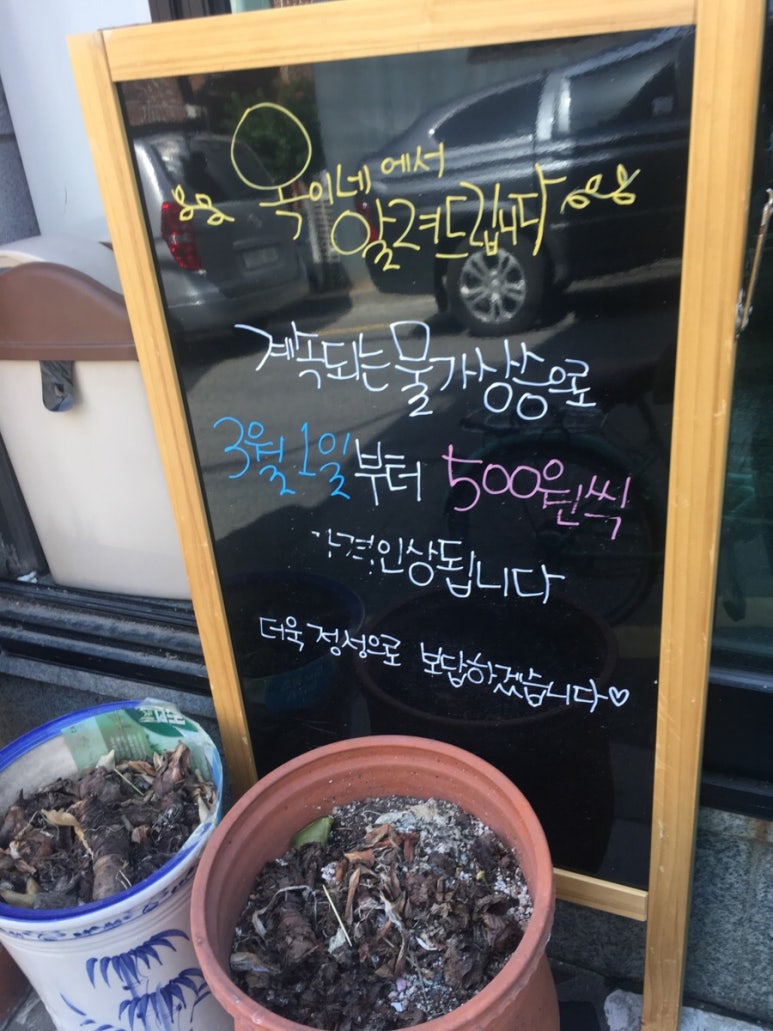 옥이네에서
알려드립니다
계속되는 물가상승으로
3월 1일부터 500원씩
가격인상됩니다
더욱 정성으로 보답하겠습니다♡